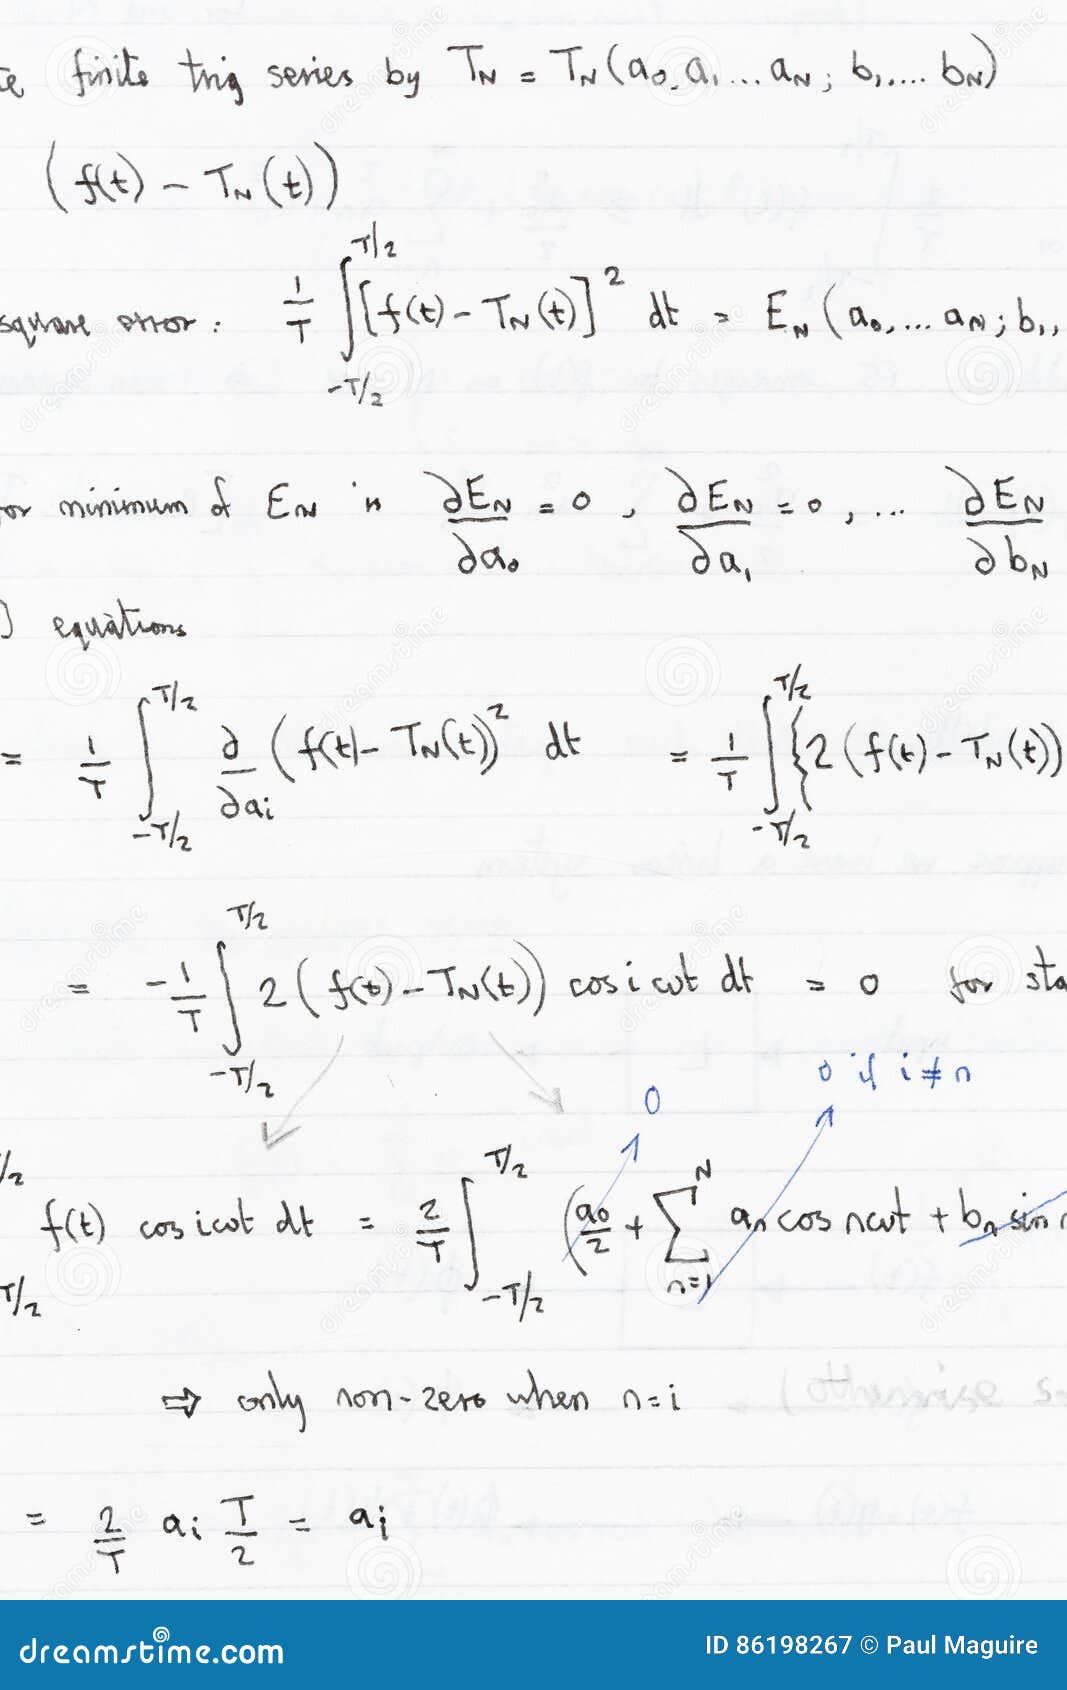 finite trig series by T_N = T_N(a_0, a_1 ... a_N; b_1, .... b_N)
(f(t) - T_N(t))
square error: 1/T ∫_{-T/2}^{T/2} [f(t) - T_N(t)]^2 dt = E_N (a_0, ... a_N; b_1,
for minimum of E_N is ∂E_N/∂a_0 = 0, ∂E_N/∂a_1 = 0, ... ∂E_N/∂b_N
) equations
= 1/T ∫_{-T/2}^{T/2} ∂/∂a_i (f(t) - T_N(t))^2 dt = 1/T ∫_{-T/2}^{T/2} {2 (f(t) - T_N(t))
= -1/T ∫_{-T/2}^{T/2} 2 (f(t) - T_N(t)) cos iωt dt = 0 for sta
0 0 if i ≠ n
T/2 f(t) cos iωt dt = 2/T ∫_{-T/2}^{T/2} (a_0/2 + Σ_{n=1}^{N} a_n cos nωt + b_n sin n
⇒ only non-zero when n=i
= 2/T a_i T/2 = a_i
dreamstime.com ID 86198267 © Paul Maguire